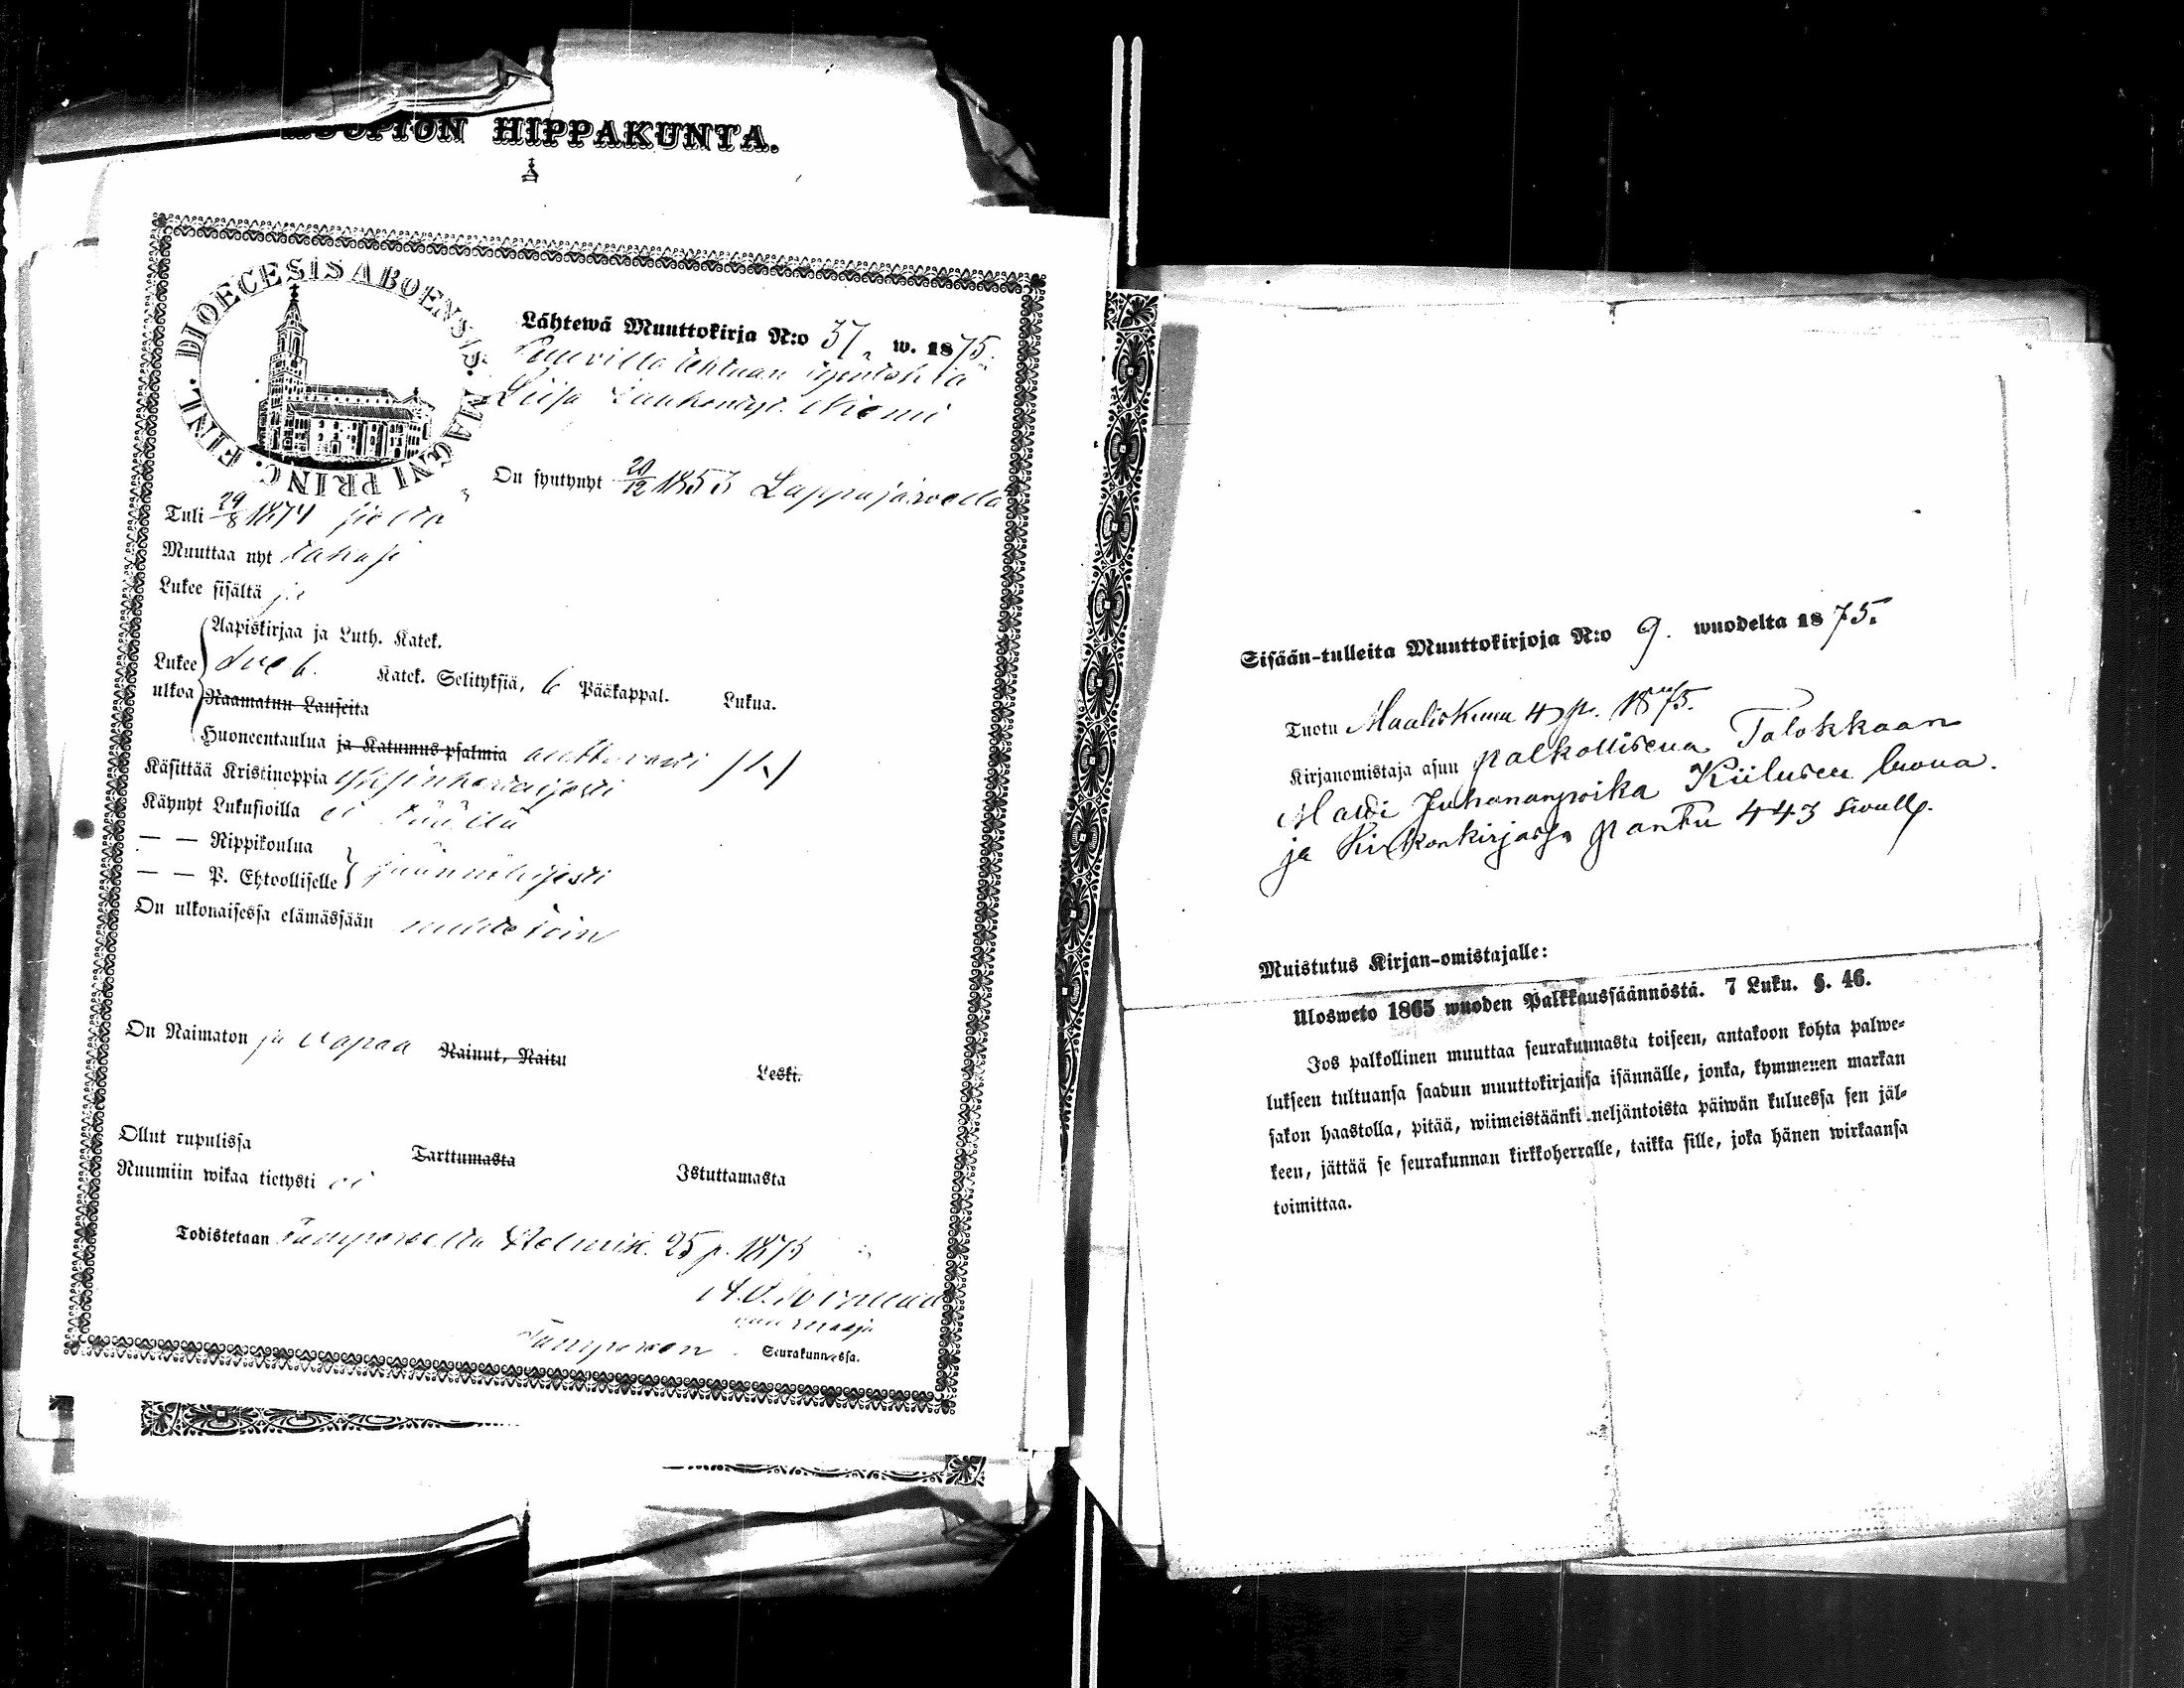 KUOPION HIPPAKUNTA.
DIOECESIS ABOENSIS. MAGNI PRINC. FINL.
Lähtewä Muuttokirja N:o 37, w. 1875.
Liisa Niemi
On syntynyt 20/12 1853 Lappajärvellä
Tuli 29/8 1874 sieltä
Muuttaa nyt takasi
Lukee sisältä
Aapiskirjaa ja Luth. Katek.
Lukee ulkoa Katek. Selityksiä, 6 Pääkappal. Lukua.
Raamatun Lauseita
Huoneentaulua ja Katumus-psalmia auttavasti
Käsittää Kristinoppia yksinkertaisesti
Käynyt Lukusioilla ei täällä
— — Rippikoulua
— — P. Ehtoolliselle
On ulkonaisessa elämässään
On Naimaton ja vapaa Nainut, Naitu Leski.
Ollut rupulissa Tarttumasta Istuttamasta
Ruumiin wikaa tietysti ei
Todistetaan Tampereella Helmik. 25 p. 1875
Tampereen Seurakunnassa.
Sisään-tulleita Muuttokirjoja N:o 9. wuodelta 1875.
Tuotu Maaliskuun 4 p. 1875.
Kirjanomistaja asuu palkollisena Talokkaan
Matti Juhananpoika Kiilusen luona.
ja Kirkonkirjassa pantu 443 sivulle.
Muistutus Kirjan-omistajalle:
Ulosweto 1865 wuoden Palkkaussäännöstä. 7 Luku. §. 46.
Jos palkollinen muuttaa seurakunnasta toiseen, antakoon kohta palwe-
lukseen tultuansa saadun muuttokirjansa isännälle, jonka, kymmenen markan
sakon haastolla, pitää, wiimeistäänki neljäntoista päiwän kuluessa sen jäl-
keen, jättää se seurakunnan kirkkoherralle, taikka sille, joka hänen wirkaansa
toimittaa.